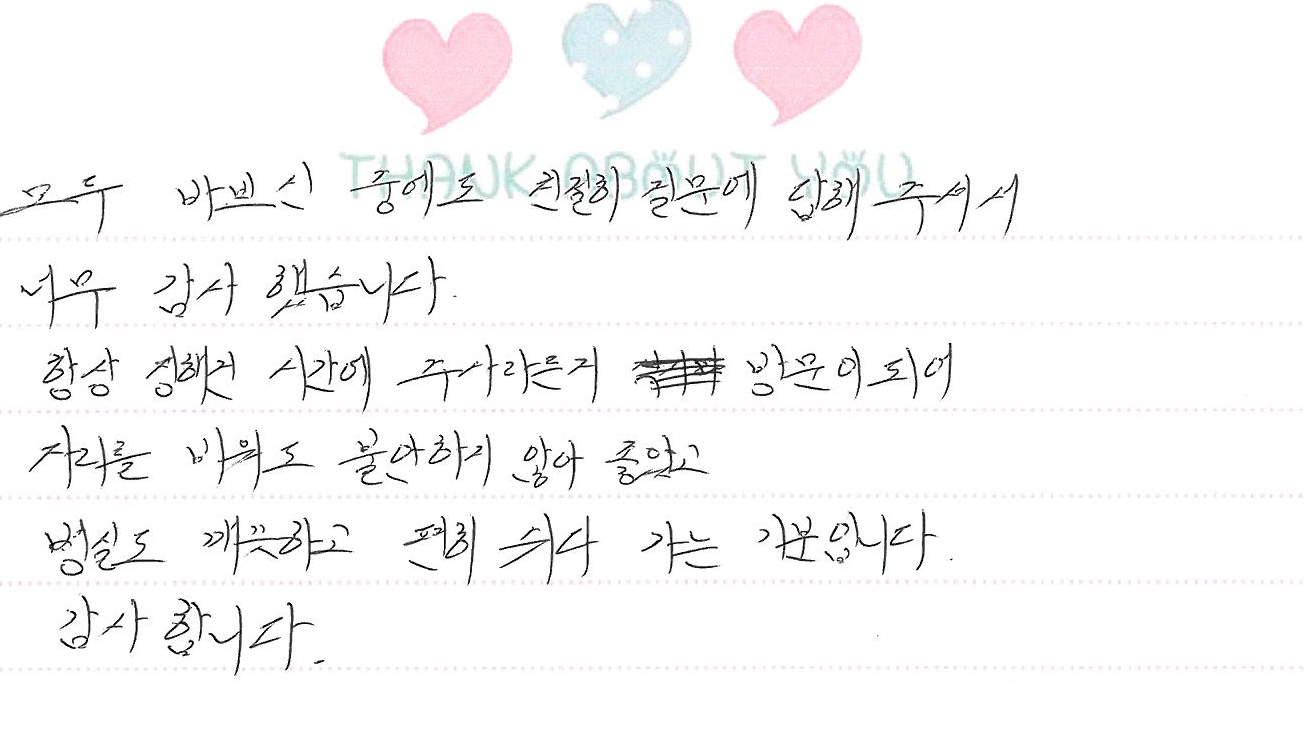 THANK ABOUT YOU
모두 바쁘신 중에도 친절히 질문에 답해 주셔서
너무 감사 했습니다.
항상 정해진 시간에 주사라든지 방문이 되어
자리를 비워도 불안하지 않아 좋았고
병실도 깨끗하고 편히 쉬다 가는 기분입니다.
감사 합니다.